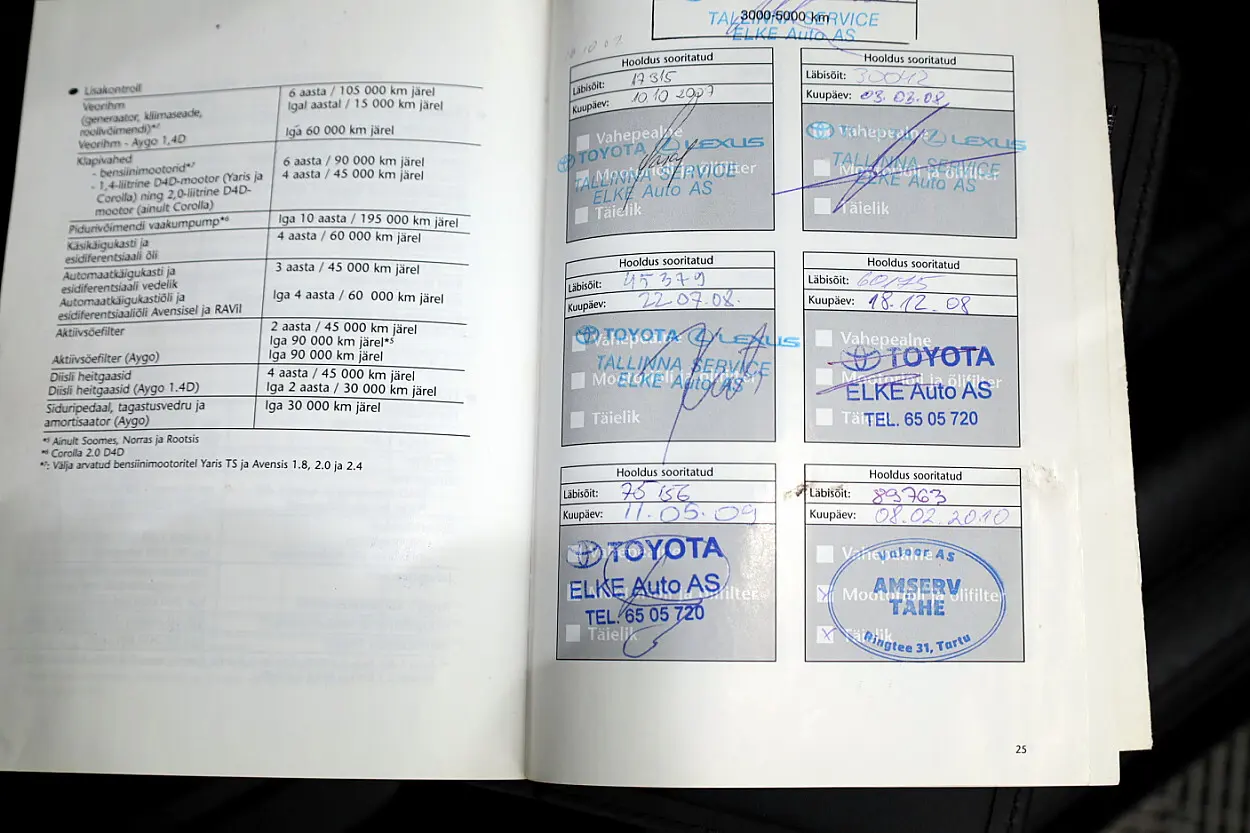 Lisakontroll
Veorihm
(generaator, kliimaseade,
roolivõimendi)*⁷
Veorihm - Aygo 1,4D
6 aasta / 105 000 km järel
Igal aastal / 15 000 km järel
Iga 60 000 km järel
Klapivahed
- bensiinimootorid*⁷
- 1,4-liitrine D4D-mootor (Yaris ja
Corolla) ning 2,0-liitrine D4D-
mootor (ainult Corolla)
6 aasta / 90 000 km järel
4 aasta / 45 000 km järel
Pidurivõimendi vaakumpump*⁶
Iga 10 aasta / 195 000 km järel
Käsikäigukasti ja
esidiferentsiaali õli
4 aasta / 60 000 km järel
Automaatkäigukasti ja
esidiferentsiaali vedelik
Automaatkäigukastiõli ja
esidiferentsiaaliõli Avensisel ja RAVil
3 aasta / 45 000 km järel
Iga 4 aasta / 60 000 km järel
Aktiivsöefilter
2 aasta / 45 000 km järel
Iga 90 000 km järel*⁵
Aktiivsöefilter (Aygo)
Iga 90 000 km järel
Diisli heitgaasid
4 aasta / 45 000 km järel
Diisli heitgaasid (Aygo 1.4D)
Iga 2 aasta / 30 000 km järel
Siduripedaal, tagastusvedru ja
amortisaator (Aygo)
Iga 30 000 km järel
*⁵ Ainult Soomes, Norras ja Rootsis
*⁶ Corolla 2.0 D4D
*⁷: Välja arvatud bensiinimootoritel Yaris TS ja Avensis 1.8, 2.0 ja 2.4
3000-5000 km
TALLINNA SERVICE
ELKE Auto AS
Hooldus sooritatud
Läbisõit: 17315
Kuupäev: 10.10 2007
Vahepealne
TOYOTA LEXUS
Mootoriõli ja õlifilter
TALLINNA SERVICE
ELKE Auto AS
Täielik
Hooldus sooritatud
Läbisõit: 30042
Kuupäev: 03.03.08
Vahepealne
LEXUS
TALLINNA SERVICE
Mootoriõli ja õlifilter
ELKE Auto AS
Täielik
Hooldus sooritatud
Läbisõit: 45379
Kuupäev: 22.07.08.
Vahepealne
TOYOTA LEXUS
TALLINNA SERVICE
Mootoriõli ja õlifilter
ELKE Auto AS
Täielik
Hooldus sooritatud
Läbisõit: 60175
Kuupäev: 18.12.08
Vahepealne
TOYOTA
Mootoriõli ja õlifilter
ELKE Auto AS
Täielik
TEL. 65 05 720
Hooldus sooritatud
Läbisõit: 75156
Kuupäev: 11.05.09
Vahepealne
TOYOTA
ELKE Auto AS
Mootoriõli ja õlifilter
TEL. 65 05 720
Täielik
Hooldus sooritatud
Läbisõit: 89763
Kuupäev: 08.02.2010
Vahepealne
AS
AMSERV
Mootoriõli ja õlifilter
TÄHE
Täielik
Ringtee 31, Tartu
25